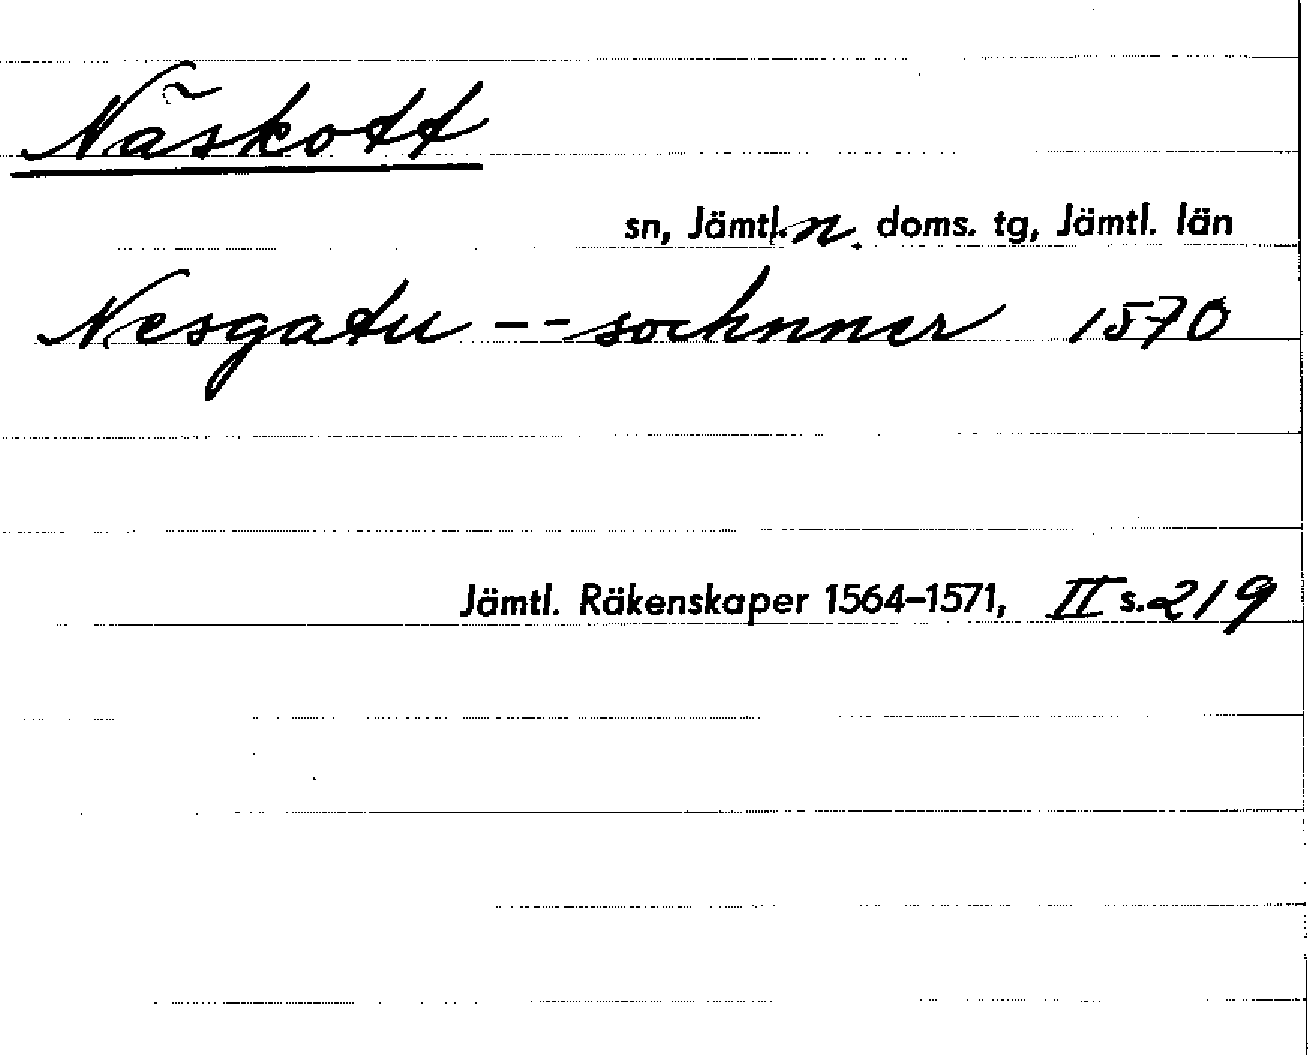 Näskott
sn, Jämtl. n. doms. tg, Jämtl. län
Nesgatu -- sochnner 1570
Jämtl. Räkenskaper 1564-1571, II s. 219